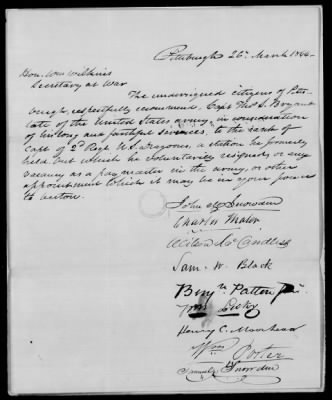 Pittsburgh 26th March 1844
Hon. Wm Wilkins
Secretary at War
The undersigned citizens of Pitts
burgh, respectfully recommend, Capt Tho S. Bryant
late of the United States army, in consideration
of his long and faithful services, to the rank of
Capt of 2d Regt U.S. Dragoons, a station he formerly
held but which he voluntarily resigned, or any
vacancy as a pay master in the army, or other
appointment which it may be in your power
to bestow.
John M Snowden
Charles
Wilson McCandless
Sam. W. Black
Benjn Patton Jr.
Henry C. Moorhead
Wm Porter
Samuel Snowden